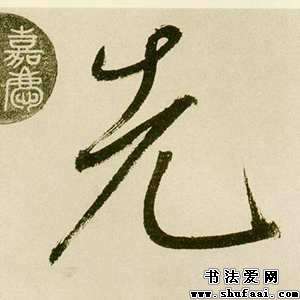 嘉慶
先
书法爱网
www.shufaai.com